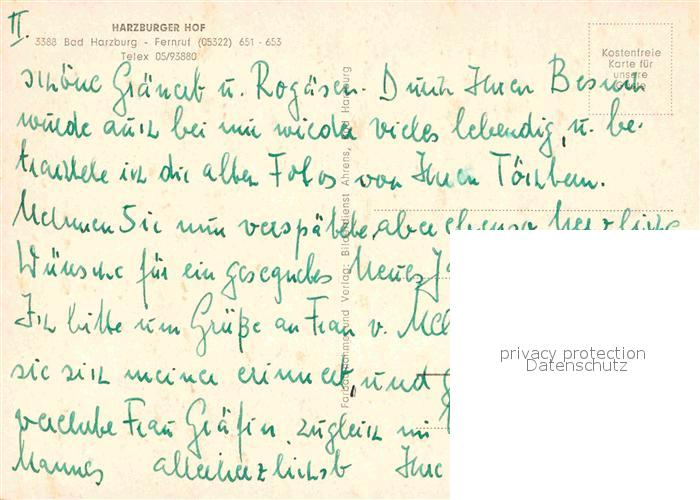 II.
HARZBURGER HOF
3388 Bad Harzburg - Fernruf (05322) 651 - 653
Telex 05/93880
Kostenfreie
Karte für
unsere
Gäste
schöne Gränert u. Rogäsen. Durch Ihren Besuch
wurde auch bei mir wieder vieles lebendig, u. be-
trachtete ich die alten Fotos von Ihren Töchtern.
Nehmen Sie nun verspätete, aber ebenso herzliche
Wünsche für ein gesegnetes Neues
Ich bitte um Grüße an Frau v.
sie sich meiner erinnert, und
verehrte Frau Gräfin, zugleich
Mannes allerherzlichst Ihre
Farbaufnahme und Verlag: Bilderdienst Ahrens, Bad Harzburg
privacy protection
Datenschutz